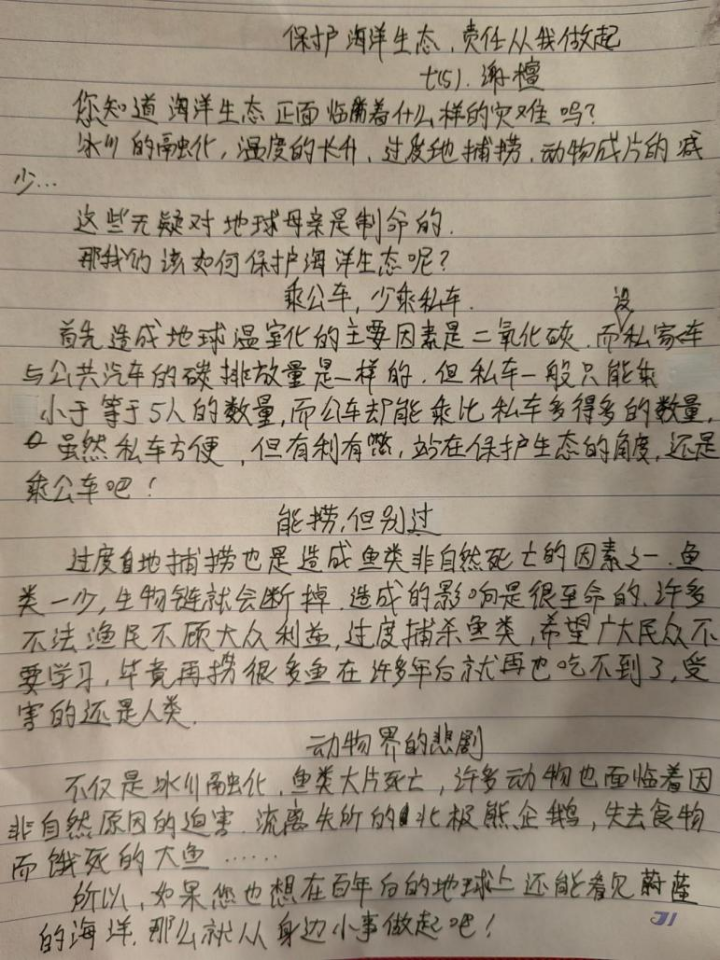 保护海洋生态,责任从我做起
七(5).谢檀
您知道海洋生态正面临着什么样的灾难吗?
冰川的融化,温度的长升,过度地捕捞,动物成片的减
少…
这些无疑对地球母亲是制命的.
那我们该如何保护海洋生态呢?
乘公车,少乘私车.
首先造成地球温室化的主要因素是二氧化碳.而设私家车
与公共汽车的碳排放量是一样的.但私车一般只能乘
小于等于5人的数量,而公车却能乘比私车多得多的数量,
虽然私车方便,但有利有弊,站在保护生态的角度,还是
乘公车吧!
能捞,但别过
过度地捕捞也是造成鱼类非自然死亡的因素之一.鱼
类一少,生物链就会断掉.造成的影响是很至命的.许多
不法渔民不顾大众利益,过度捕杀鱼类,希望广大民众不
要学习,毕竟再捞很多鱼在许多年后就再也吃不到了,受
害的还是人类.
动物界的悲剧
不仅是冰川融化,鱼类大片死亡,许多动物也面临着因
非自然原因的迫害.流离失所的北极熊企鹅,失去食物
而饿死的大鱼……
所以,如果您也想在百年后的地球上还能看见蔚蓝
的海洋.那么就从身边小事做起吧!